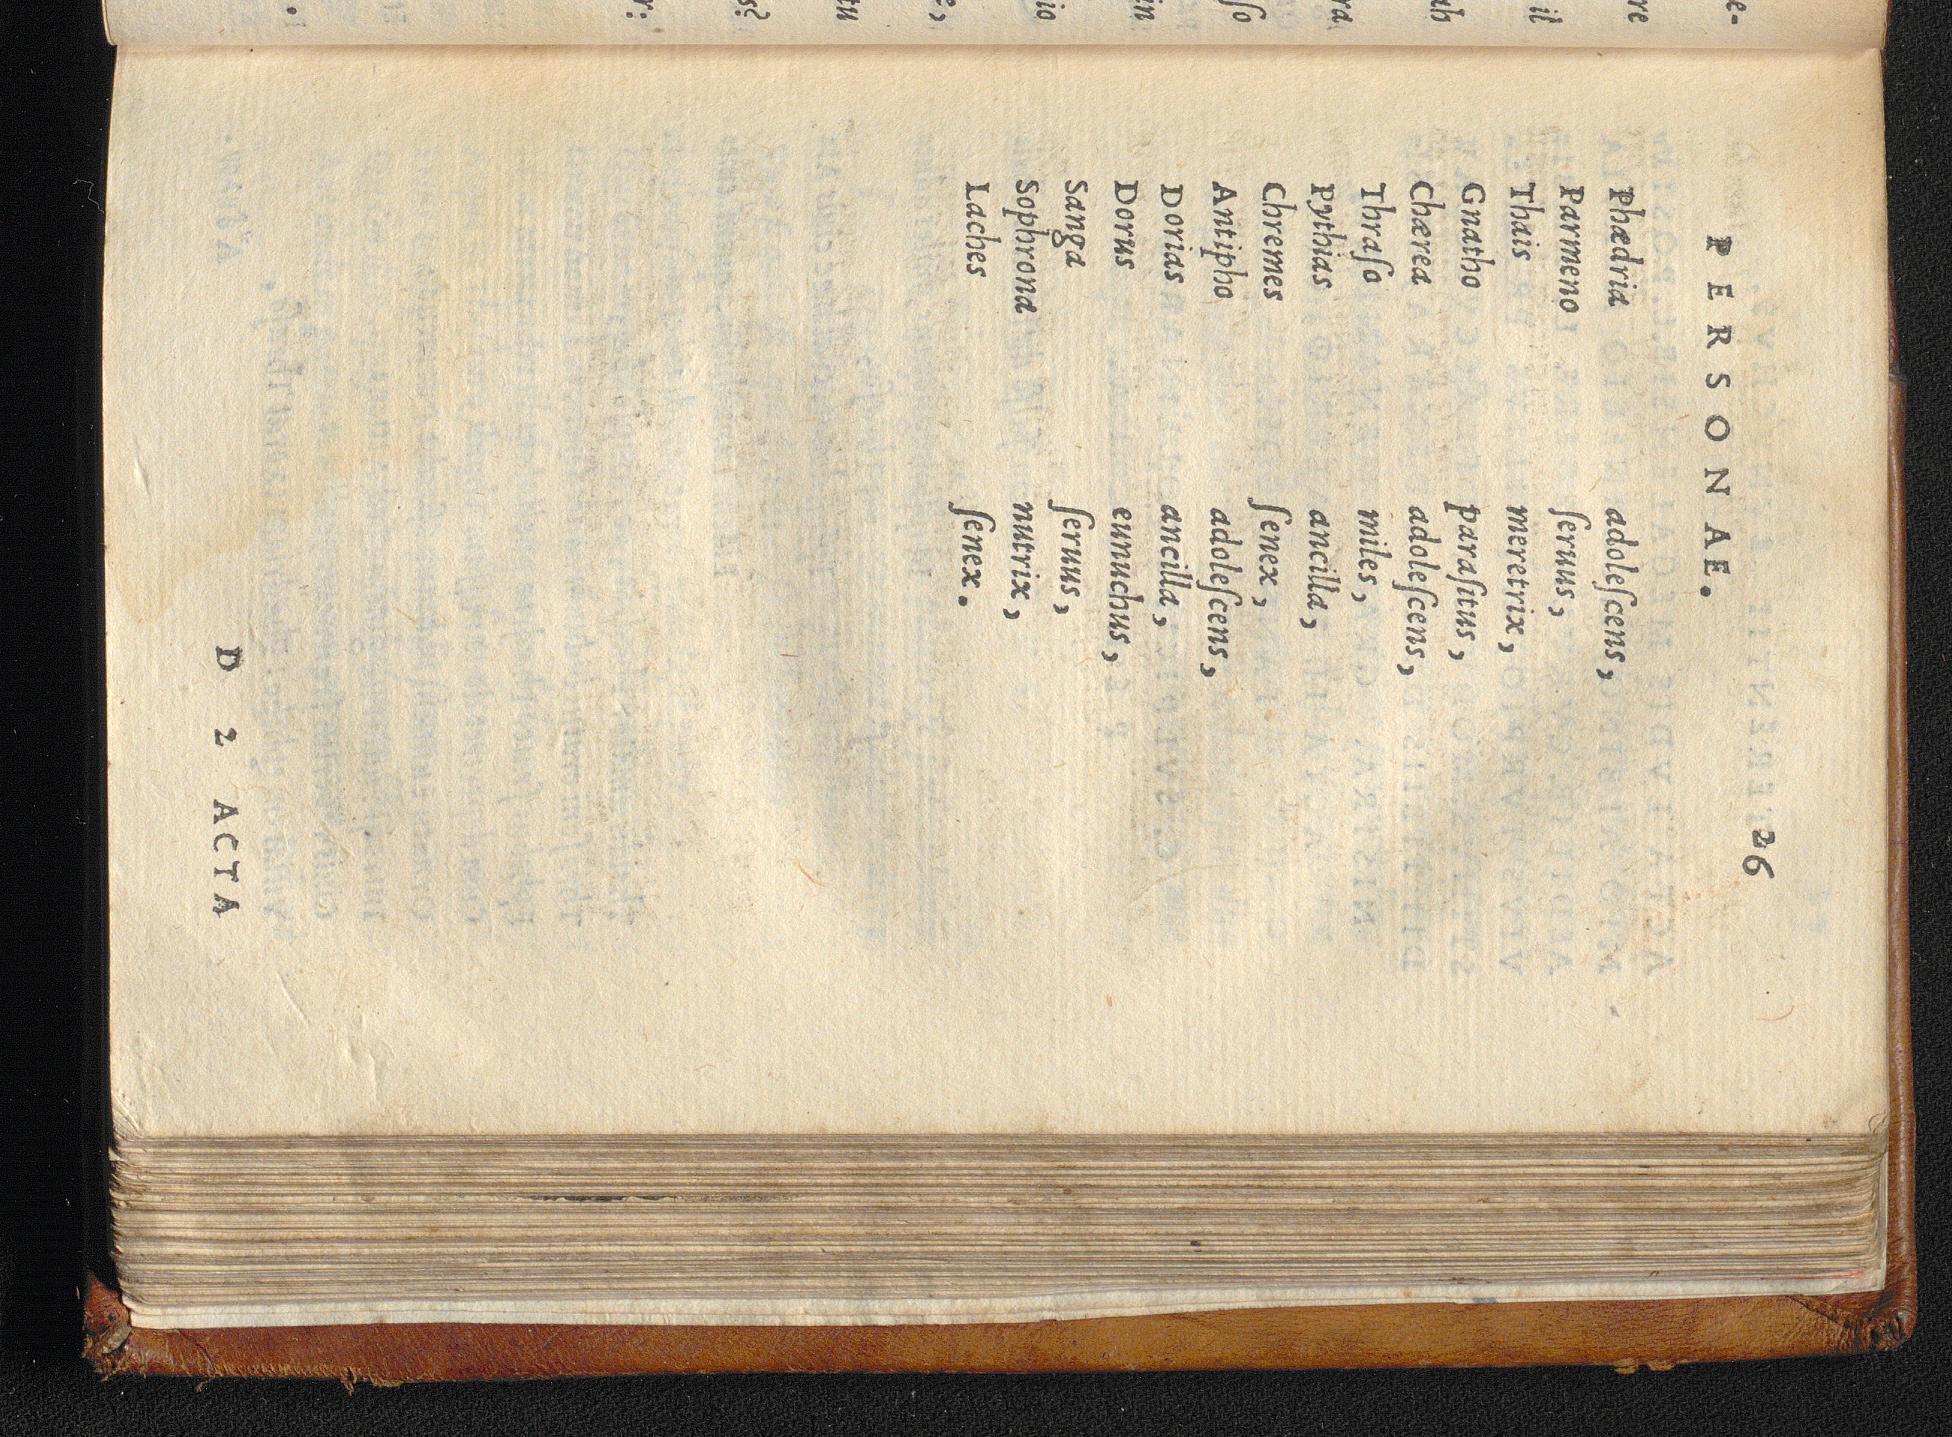 26
PERSONAE.
Phædria adoleſcens,
Parmeno ſeruus,
Thais meretrix,
Gnatho paraſitus,
Chærea adoleſcens,
Thraſo miles,
Pythias ancilla,
Chremes ſenex,
Antipho adoleſcens,
Dorias ancilla,
Dorus eunuchus,
Sanga ſeruus,
Sophrona nutrix,
Laches ſenex.
D 2 ACTA